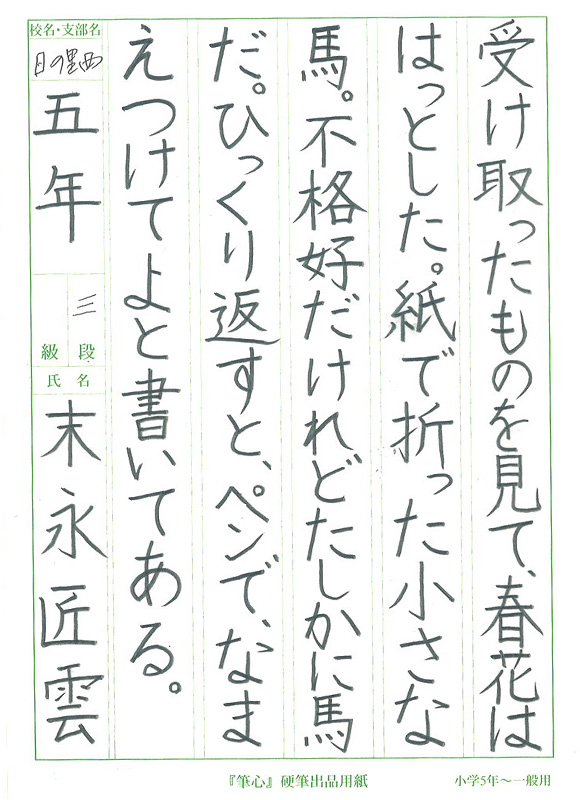 受け取ったものを見て、春花は
はっとした。紙で折った小さな
馬。不格好だけれどたしかに馬
だ。ひっくり返すと、ペンで、なま
えつけてよと書いてある。
校名・支部名
日の里西
五年
三
級 段
氏名
末永匠雲
『筆心』硬筆出品用紙
小学5年～一般用